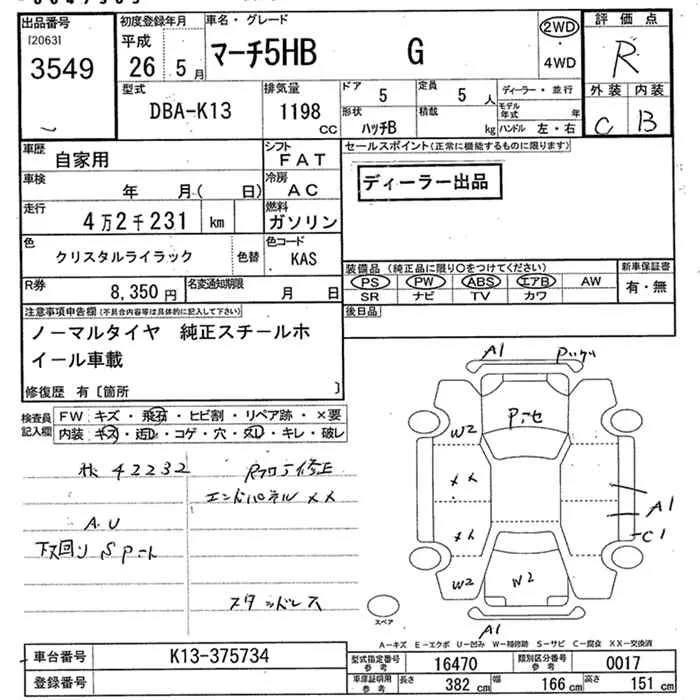 出品番号
[2063]
3549
初度登録年月
平成
26 5月
車名・グレード
マーチ5HB G
2WD
・
4WD
評価点
R
外装 内装
C B
型式
DBA-K13
排気量
1198
cc
ドア
5
定員
5人
形状
ハッチB
積載
kg
ディーラー・並行
モデル年式 年
ハンドル 左・右
車歴
自家用
シフト
FAT
車検
年 月( 日)
冷房
AC
走行
4万2千231 km
燃料
ガソリン
色
クリスタルライラック
色替
色コード
KAS
R券
8,350円
名変通知期限
月 日
セールスポイント(正常に機能するものに限ります)
ディーラー出品
装備品(純正品に限り○をつけてください)
PS PW ABS エアB AW
SR ナビ TV カワ
新車保証書
有・無
後日品
注意事項申告欄(不具合内容等は具体的に記入して下さい)
ノーマルタイヤ 純正スチールホ
イール車載
修復歴 有〔箇所 〕
検査員
記入欄
FW キズ・飛石・ヒビ割・リペア跡・×要
内装 キズ・汚レ・コゲ・穴・欠レ・キレ・破レ
42232
A.U
下回りSPート
エンドパネル XX
スタッドレス
A1
W2
XX
XX
W2
W2
A1
A1
C1
スペア
A-キズ E-エクボ U-凹み W-補修跡 S-サビ C-腐食 XX-交換済
車台番号
K13-375734
登録番号
型式指定番号
参考
16470
類別区分番号
参考
0017
車庫証明用
参考
長さ 382cm
幅 166cm
高さ 151cm